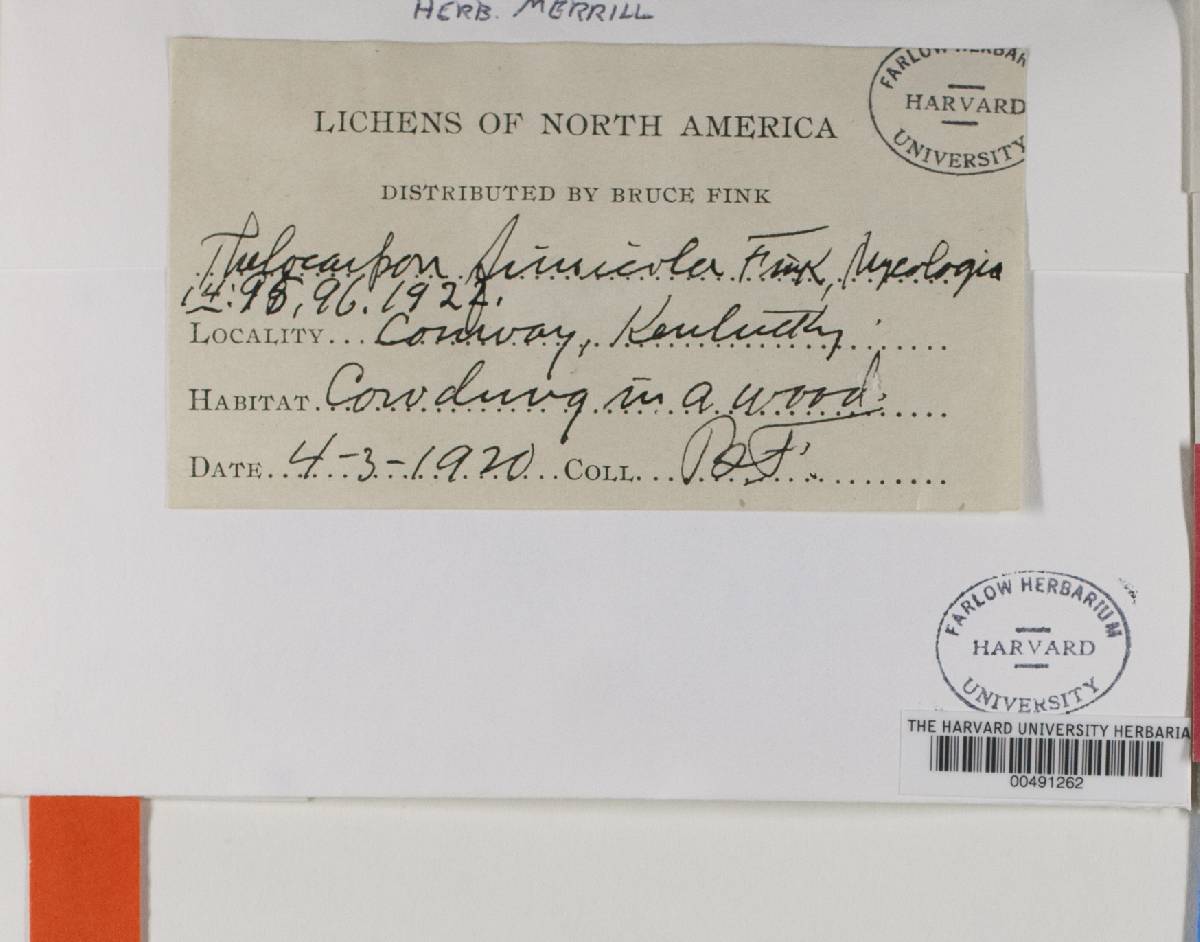 HERB. MERRILL
FARLOW HERBAR
HARVARD
UNIVERSITY
LICHENS OF NORTH AMERICA
DISTRIBUTED BY BRUCE FINK
Thelocarpon fimicola Fink, Mycologia
14: 98, 96. 1922.
LOCALITY... Conway, Kentucky
HABITAT. Cow dung in a wood.
DATE... 4-3-1920 ...COLL... B.F.
FARLOW HERBARIUM
HARVARD
UNIVERSITY
THE HARVARD UNIVERSITY HERBARIA
00491262